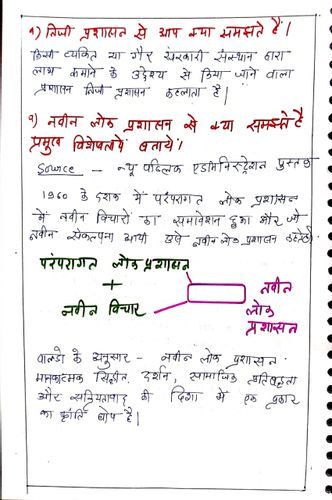 १) निजी प्रशासन से आप क्या समझते हैं।
किसी व्यक्ति या गैर सरकारी संस्थान द्वारा
लाभ कमाने के उद्देश्य से किया जाने वाला
प्रशासन निजी प्रशासन कहलाता है।
२) नवीन लोक प्रशासन से क्या समझते है
प्रमुख विशेषताये बताये।
Source - न्यू पब्लिक एडमिनिस्ट्रेशन पुस्तक
1960 के दशक में परंपरागत लोक प्रशासन
में नवीन विचारों का समावेशन हुआ और जो
नवीन संकल्पना आयी उसे नवीन लोक प्रशासन
परंपरागत लोक प्रशासन
+
नवीन विचार
नवीन
लोक
प्रशासन
वाल्डो के अनुसार - नवीन लोक प्रशासन
सिद्धांत, दर्शन, सामाजिक
और की दिशा में एक प्रकार
का है।